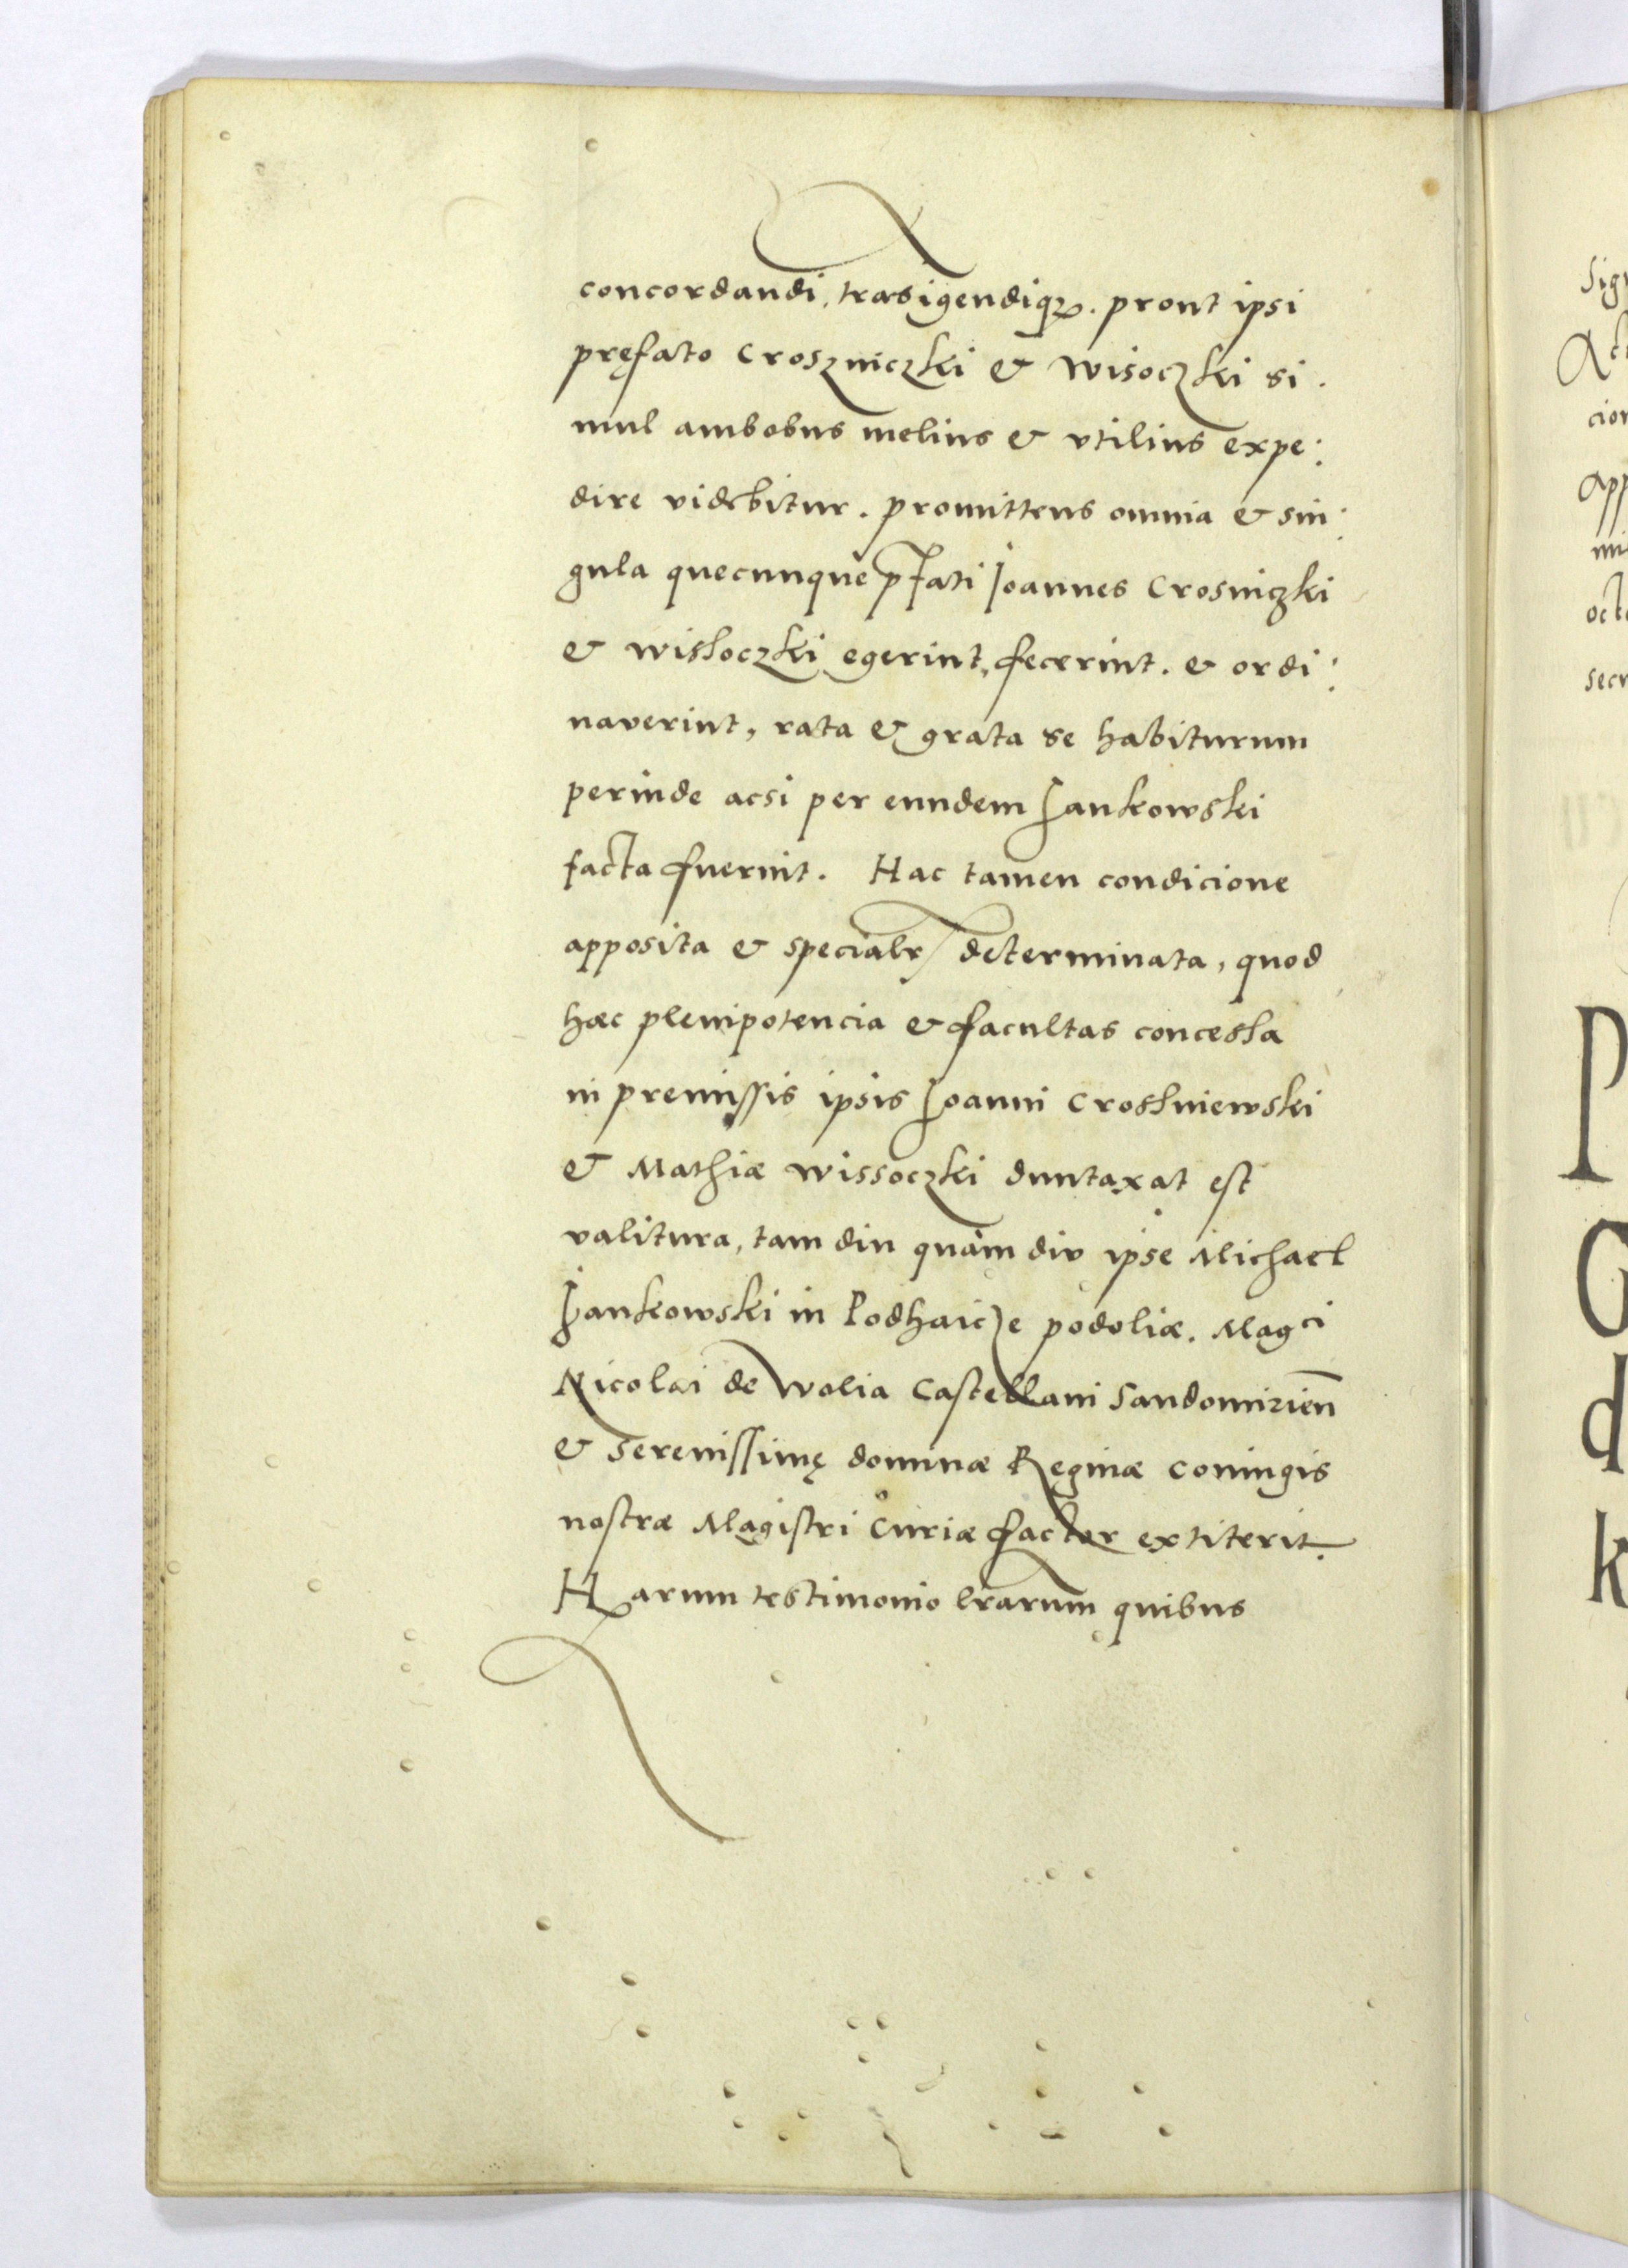 concordandi, trasigendiqꝫ. prout ipsi
pręfato Croszniczki & Wisoczki si.
mul ambobus melius & vtilius expe:
dire videbitur. promittens omnia & sin:
gula quecunque pfati Joannes Crosniczki
& wissoczki egerint, fecerint. & ordi:
naverint, rata & grata se habiturum
perinde acsi per eundem Jankowski
facta fuerint. Hac tamen condicione
apposita & specialr determinata, quod
hæc plenipotencia & facultas concessa
in premissis ipsis Joanni Crossniewski
& Mathiæ wissoczki duntaxat est
valitura, tam diu quàm diu ipse Michael
Jankowski in Podhaicze podoliæ. Magci
Nicolai de Wolia Castellani Sandomirień
& Serenissimę dominæ Reginæ coniugis
nostræ Magistri Curiæ factor extiterit.
Harum testimonio lrarum quibus
Sig
cion
app
mi
octo
secu
P
G
d
k